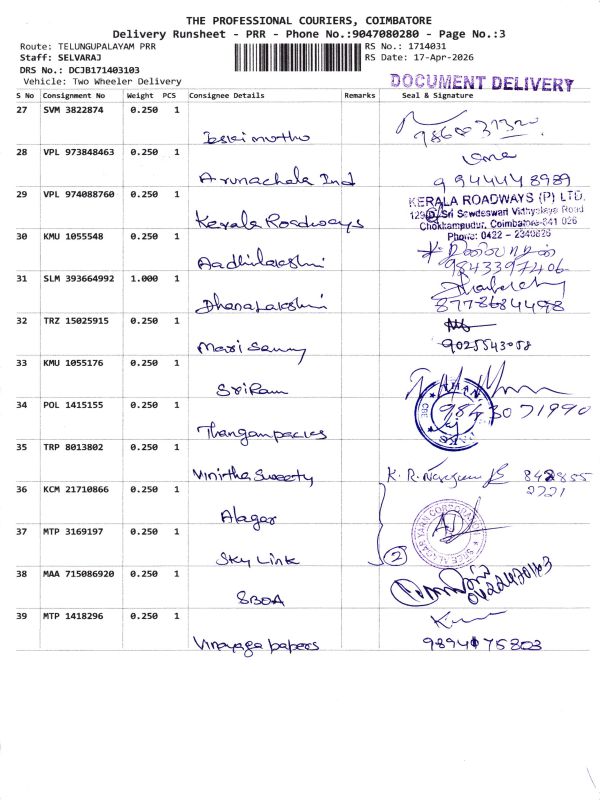 THE PROFESSIONAL COURIERS, COIMBATORE
Delivery Runsheet - PRR - Phone No.:9047080280 - Page No.:3
Route: TELUNGUPALAYAM PRR
RS No.: 1714031
Staff: SELVARAJ
RS Date: 17-Apr-2026
DRS No.: DCJB171403103
Vehicle: Two Wheeler Delivery
DOCUMENT DELIVERY
S No Consignment No Weight PCS Consignee Details Remarks Seal & Signature
27 SVM 3822874 0.250 1
28 VPL 973848463 0.250 1
Arunachala Ind 9944448989
29 VPL 974088760 0.250 1
KERALA ROADWAYS (P) LTD.
129/D, Sri Sowdeswari Vidhyalaya Road
Chokkampudur, Coimbatore-641 026
Phone: 0422 - 2340626
Kerala Roadways
30 KMU 1055548 0.250 1
Aadhilakshmi 9843397406
31 SLM 393664992 1.000 1
Dhanalakshmi 8778684498
32 TRZ 15025915 0.250 1
Mari Samy 9025543058
33 KMU 1055176 0.250 1
SriRam
34 POL 1415155 0.250 1
9843071990
35 TRP 8013802 0.250 1
Vinirtha Sweety
36 KCM 21710866 0.250 1
Alagar
37 MTP 3169197 0.250 1
Sky Link 2
38 MAA 715086920 0.250 1
SBOA
39 MTP 1418296 0.250 1
Vinayaga papers 9894075803